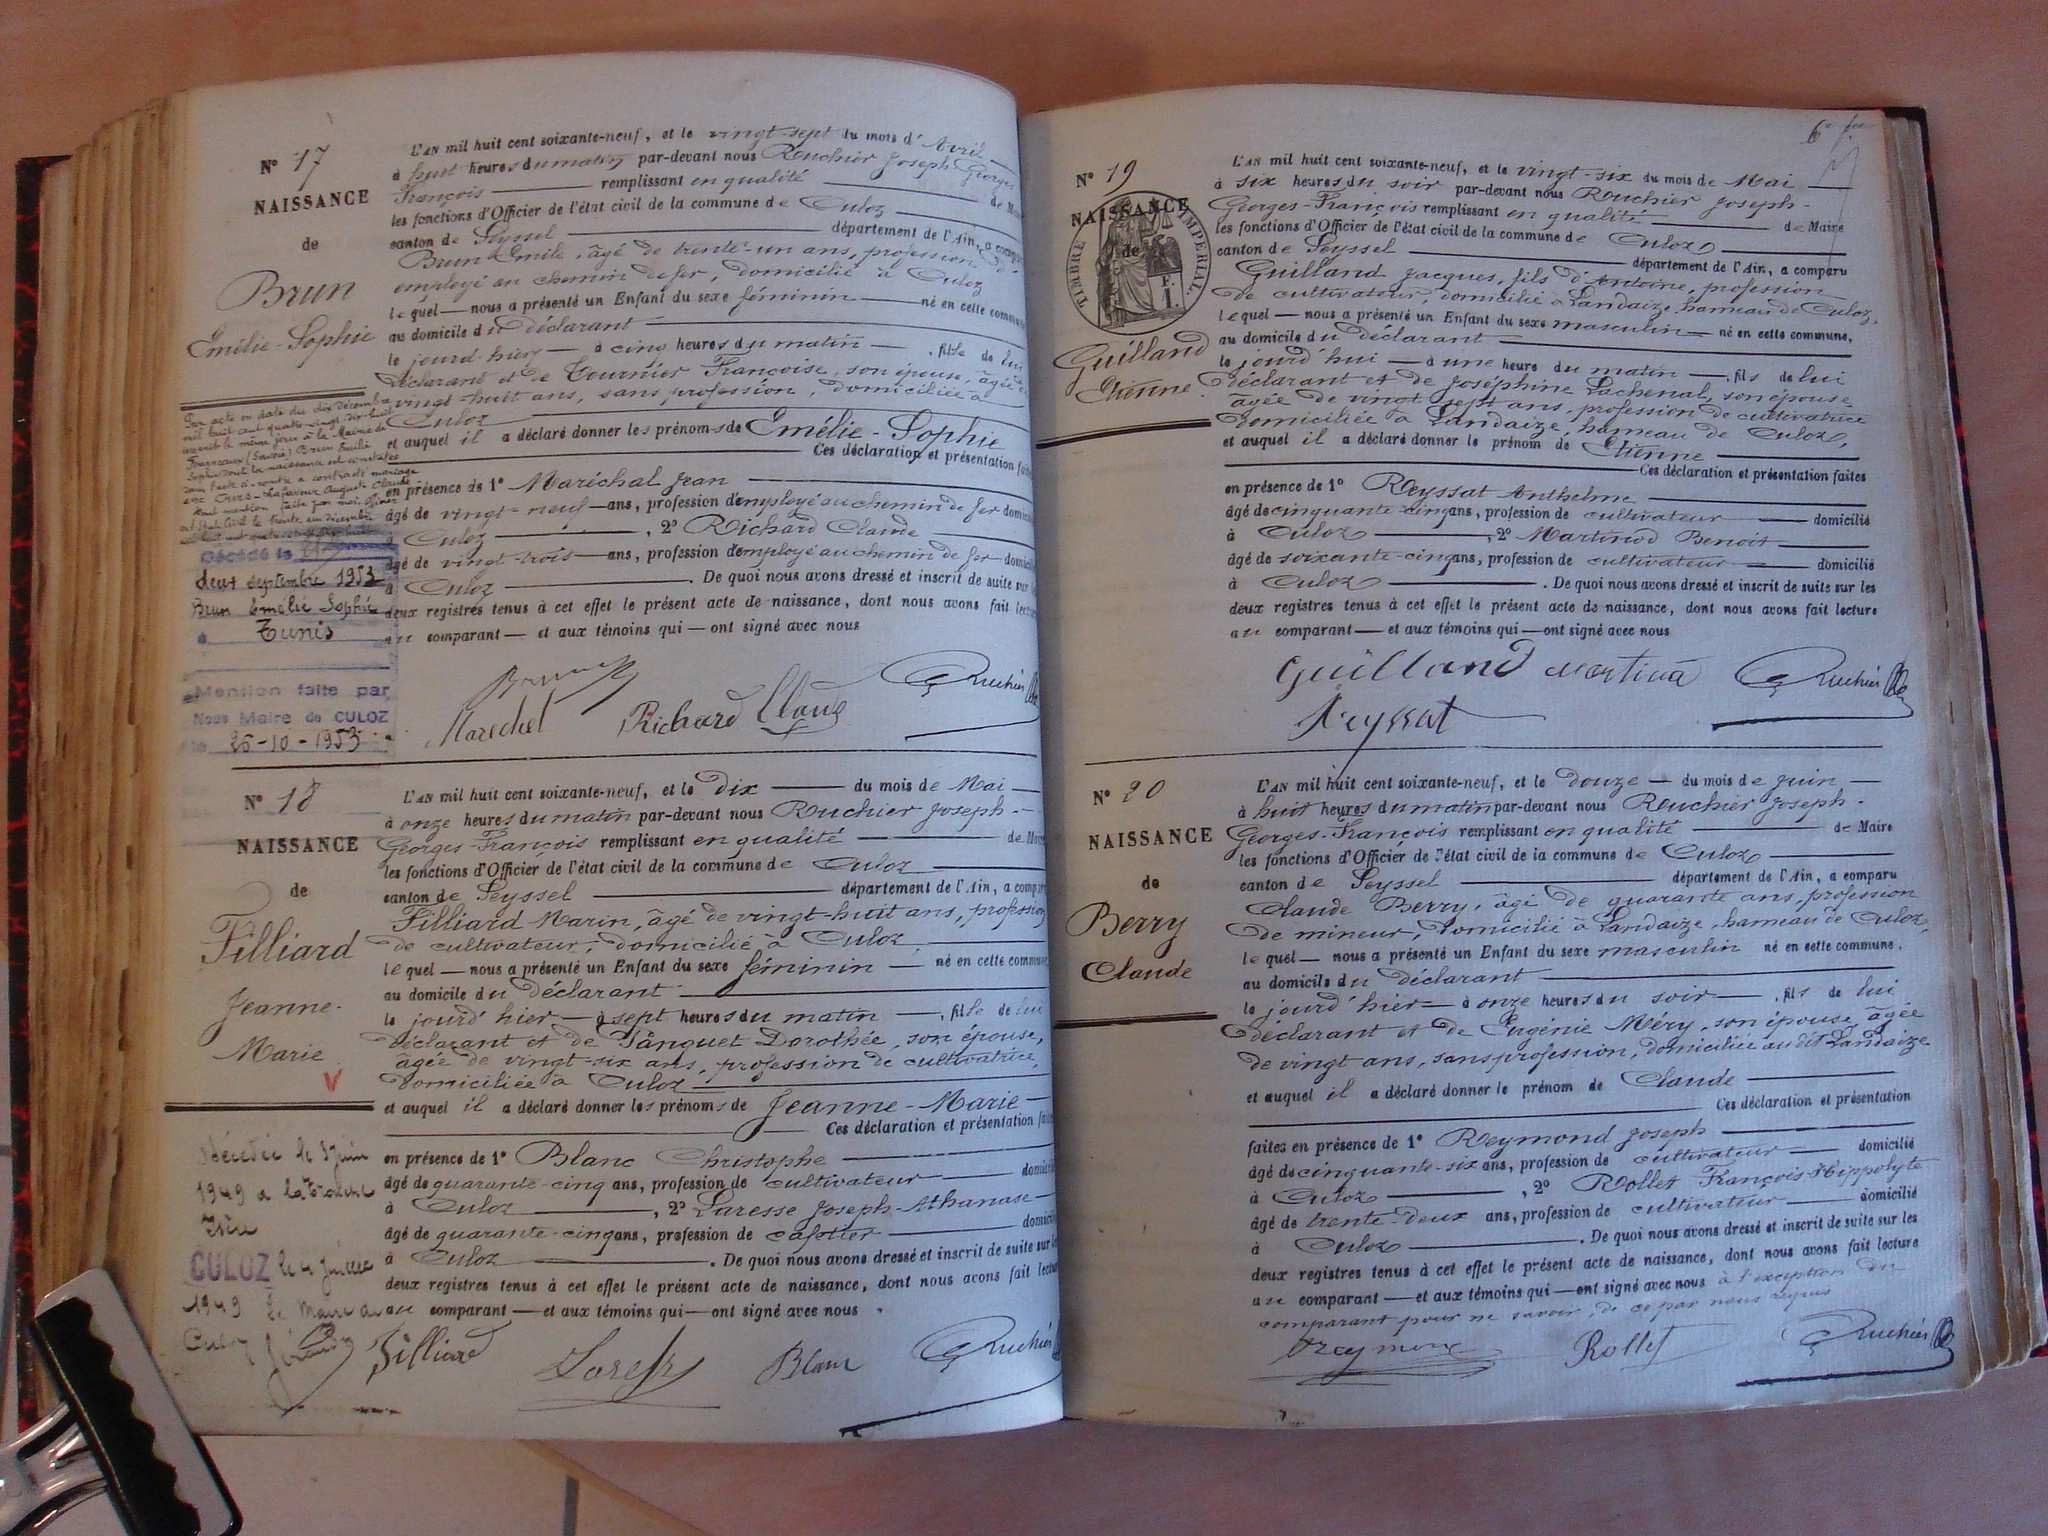 N° 17
NAISSANCE
de
Brun
Emélie-Sophie
L'AN mil huit cent soixante-neuf, et le vingt-sept du mois d'Avril
à huit heures du matin par-devant nous Ruchier Joseph Georges
François remplissant en qualité de Maire
les fonctions d'Officier de l'état civil de la commune de Culoz
canton de Seyssel département de l'Ain, a comparu
Brun Emile, âgé de trente-un ans, profession d'
employé au chemin de fer, domicilié à Culoz
lequel nous a présenté un Enfant du sexe féminin né en cette commune
au domicile du déclarant
le jourd-hier à cinq heures du matin, fille de lui
déclarant et de Tournier Françoise, son épouse, âgée de
vingt-huit ans, sans profession, domiciliée à
Culoz
et auquel il a déclaré donner les prénoms de Emélie-Sophie
Ces déclaration et présentation faites
en présence de 1° Maréchal Jean
âgé de vingt-neuf ans, profession d'employé au chemin de fer domicilié
à Culoz, 2° Richard Claude
âgé de vingt-trois ans, profession d'employé au chemin de fer domicilié
à Culoz. De quoi nous avons dressé et inscrit de suite sur les
deux registres tenus à cet effet le présent acte de naissance, dont nous avons fait lecture
au comparant et aux témoins qui ont signé avec nous
Par acte en date du dix décembre
mil huit cent quatre-vingt dix-huit
inscrit le même jour à la Mairie de
Fourneaux (Savoie) Brun Emélie
Sophie dont la naissance est constatée
dans l'acte ci-contre a contracté mariage
avec Auguste Claude
dont mention faite par nous officier
Décédé le
deux septembre 1953
Brun Emélie Sophie
à Tunis
Mention faite par
Nous Maire de CULOZ
le 26-10-1953
Brun Ruchier
Marechal Richard Claude
N° 18
NAISSANCE
de
Filliard
Jeanne-
Marie
L'AN mil huit cent soixante-neuf, et le dix du mois de Mai
à onze heures du matin par-devant nous Ruchier Joseph-
Georges-François remplissant en qualité de Maire
les fonctions d'Officier de l'état civil de la commune de Culoz
canton de Seyssel département de l'Ain, a comparu
Filliard Marin, âgé de vingt-huit ans, profession
de cultivateur, domicilié à Culoz
lequel nous a présenté un Enfant du sexe féminin né en cette commune
au domicile du déclarant
le jourd'hier à sept heures du matin, fille de lui
déclarant et de Pânguet Dorothée, son épouse,
âgée de vingt-six ans, profession de cultivatrice,
domiciliée à Culoz
et auquel il a déclaré donner les prénoms de Jeanne-Marie
Ces déclaration et présentation faites
en présence de 1° Blanc Christophe
âgé de quarante-cinq ans, profession de cultivateur domicilié
à Culoz, 2° Laresse Joseph-Athanase
âgé de quarante-cinq ans, profession de cafetier domicilié
à Culoz. De quoi nous avons dressé et inscrit de suite sur les
deux registres tenus à cet effet le présent acte de naissance, dont nous avons fait lecture
au comparant et aux témoins qui ont signé avec nous.
Décédée le 3 juin
1949 à la Tronche
Isère
CULOZ le 4 juillet
1949 le Maire de
Culoz
Filliard Blanc Ruchier
6e
N° 19
NAISSANCE
de
TIMBRE IMPERIAL
Guilland
Etienne
L'AN mil huit cent soixante-neuf, et le vingt-six du mois de Mai
à six heures du soir par-devant nous Ruchier Joseph-
Georges-François remplissant en qualité de Maire
les fonctions d'Officier de l'état civil de la commune de Culoz
canton de Seyssel département de l'Ain, a comparu
Guilland Jacques, fils d'Antoine, profession
de cultivateur, domicilié à Landaize, hameau de Culoz,
lequel nous a présenté un Enfant du sexe masculin né en cette commune,
au domicile du déclarant
le jourd'hui à une heure du matin, fils de lui
déclarant et de Joséphine Lachenal, son épouse
âgée de vingt sept ans, profession de cultivatrice
domiciliée à Landaize, hameau de Culoz,
et auquel il a déclaré donner le prénom de Etienne
Ces déclaration et présentation faites
en présence de 1° Reyssat Anthelme
âgé de cinquante-cinq ans, profession de cultivateur domicilié
à Culoz, 2° Martinod Benoit
âgé de soixante-cinq ans, profession de cultivateur domicilié
à Culoz. De quoi nous avons dressé et inscrit de suite sur les
deux registres tenus à cet effet le présent acte de naissance, dont nous avons fait lecture
au comparant et aux témoins qui ont signé avec nous
Guilland Martinod Ruchier
Reyssat
N° 20
NAISSANCE
de
Berry
Claude
L'AN mil huit cent soixante-neuf, et le douze du mois de Juin
à huit heures du matin par-devant nous Ruchier Joseph-
Georges-François remplissant en qualité de Maire
les fonctions d'Officier de l'état civil de la commune de Culoz
canton de Seyssel département de l'Ain, a comparu
Claude Berry, âgé de quarante ans, profession
de mineur, domicilié à Landaize, hameau de Culoz,
lequel nous a présenté un Enfant du sexe masculin né en cette commune,
au domicile du déclarant
le jourd'hier à onze heures du soir, fils de lui
déclarant et de Eugénie Méry, son épouse, âgée
de vingt ans, sans profession, domiciliée au dit Landaize
et auquel il a déclaré donner le prénom de Claude
Ces déclaration et présentation
faites en présence de 1° Reymond Joseph
âgé de cinquante-six ans, profession de cultivateur domicilié
à Culoz, 2° Rollet François-Hippolyte
âgé de trente-deux ans, profession de cultivateur domicilié
à Culoz. De quoi nous avons dressé et inscrit de suite sur les
deux registres tenus à cet effet le présent acte de naissance, dont nous avons fait lecture
au comparant et aux témoins qui ont signé avec nous à l'exception du
comparant pour ne savoir, de ce par nous requis
Reymond Rollet Ruchier